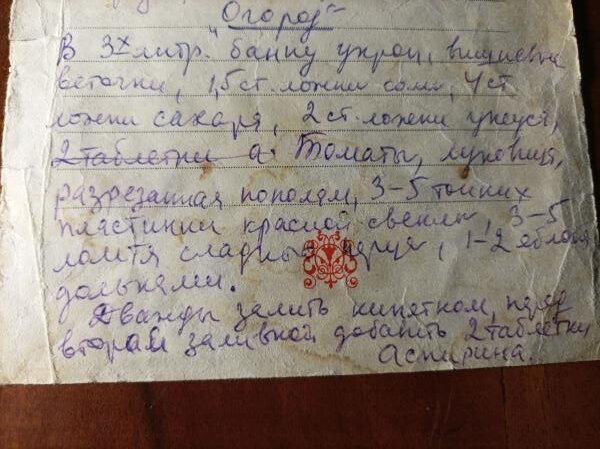 "Огород"
В 3х литр. банку укроп, вишневые
веточки, 1,5 ст. ложки соли, 4 ст
ложки сахара, 2 ст. ложки уксуса,
2 таблетки а Томаты, луковица,
разрезанная пополам, 3-5 тонких
пластинки красной свеклы, 3-5
ломтя сладкого перца, 1-2 яблока
дольками.
Дважды залить кипятком, перед
второй заливкой добавить 2 таблетки
Аспирина.